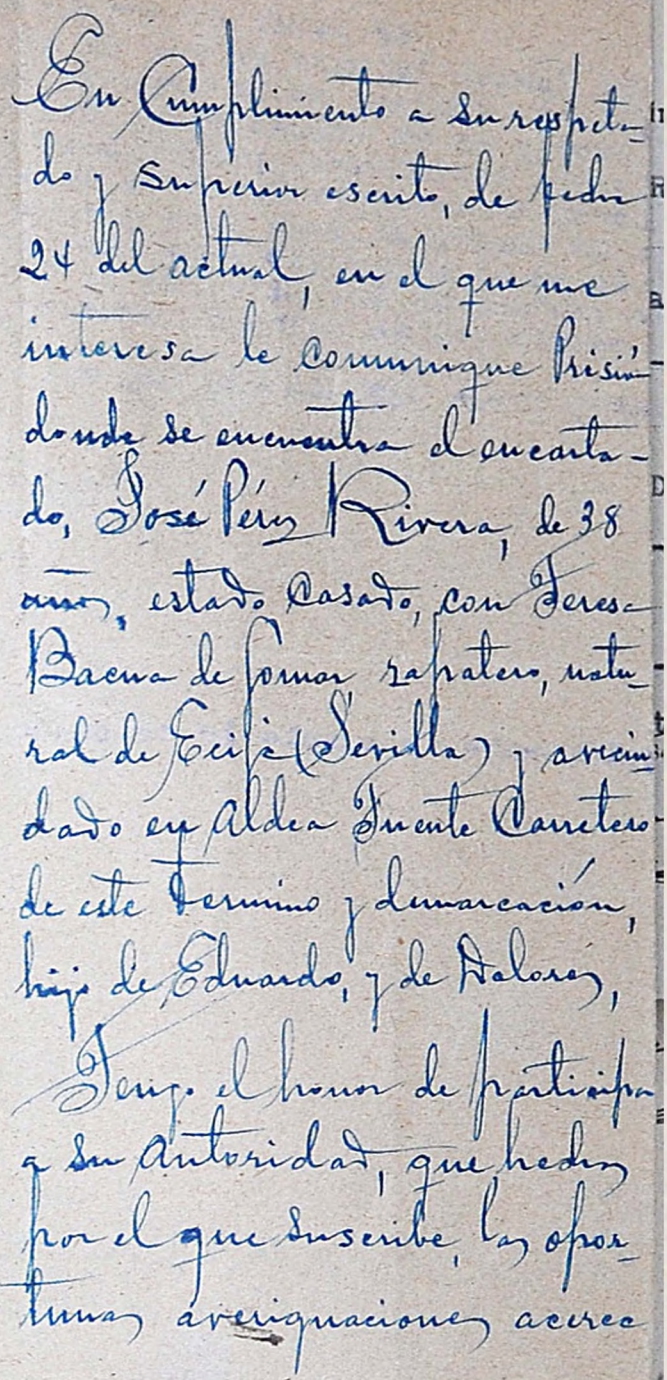 En Cumplimiento a su respeta-
do y superior escrito, de fecha
24 del actual, en el que me
interesa le comunique Prisión
donde se encuentra el encarta-
do, José Pérez Rivera, de 38
años, estado Casado, con Teresa
Baena de Gomar, zapatero, natu-
ral de Ecija (Sevilla) y avecin
dado en Aldea Fuente Carretero
de este termino y demarcación,
hijo de Eduardo, y de Dolores,
Tengo el honor de participar
a su Autoridad, que hechas
por el que suscribe, las opor-
tunas averiguaciones acerca